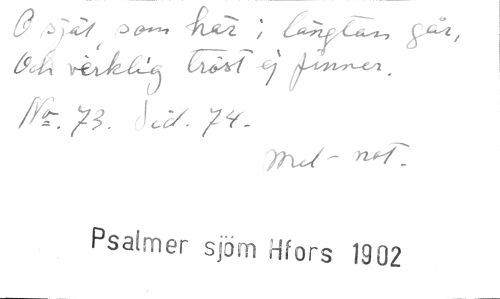 O själ, som här i längtan går,
Och verklig tröst ej finner.
No. 73. Sid. 74.
Mel-not.
Psalmer sjöm Hfors 1902